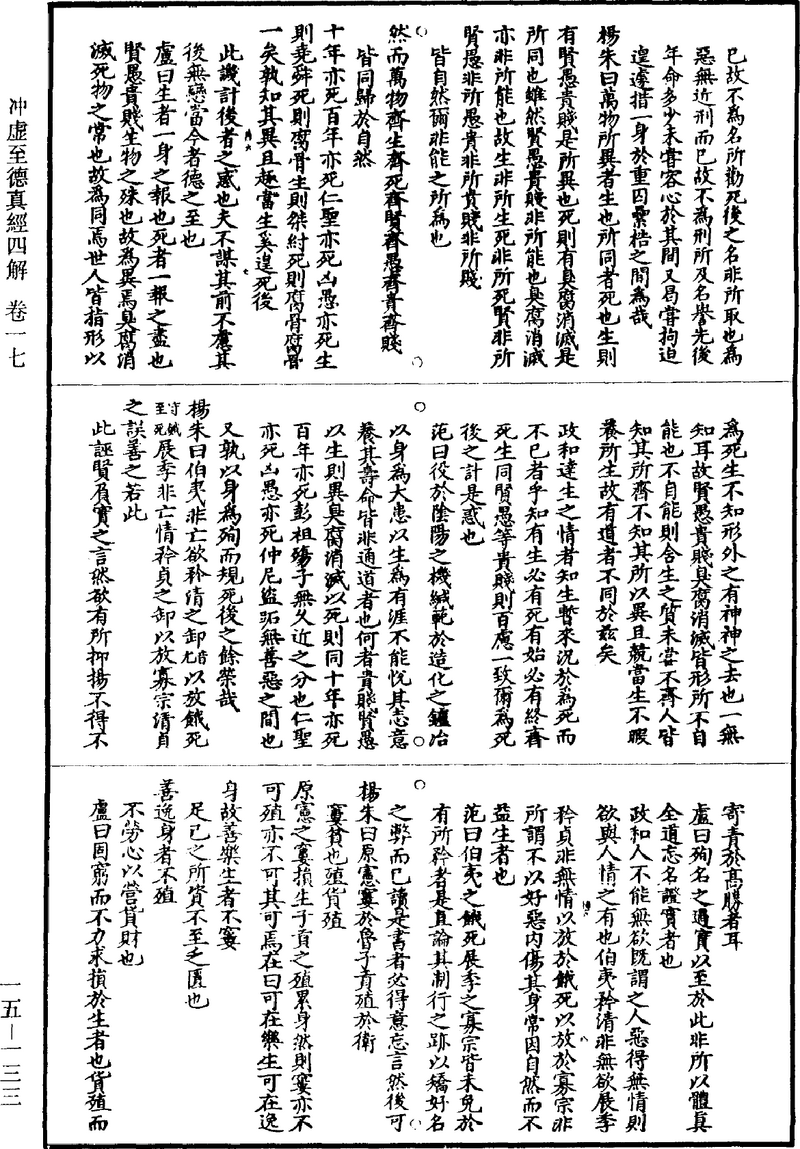 冲虛至德真經四解　卷一七
一五—一三三
已故不爲名所勸死後之名非所取也爲
惡無近刑而已故不爲刑所及名譽先後
年命多少未嘗容心於其間又曷嘗拘迫
遑遽措一身於重囚纍梏之間爲哉
楊朱曰萬物所異者生也所同者死也生則
有賢愚貴賤是所異也死則有臭腐消滅是
所同也雖然賢愚貴賤非所能也臭腐消滅
亦非所能也故生非所生死非所死賢非所
賢愚非所愚貴非所貴賤非所賤
皆自然爾非能之所爲也
然而萬物齊生齊死齊賢齊愚齊貴齊賤
皆同歸於自然
十年亦死百年亦死仁聖亦死凶愚亦死生
則堯舜死則腐骨生則桀紂死則腐骨腐骨
一矣孰知其異且趣當生奚遑死後
此譏計後者之惑也夫不謀其前不慮其
後無戀當今者德之至也
盧曰生者一身之報也死者一報之盡也
賢愚貴賤生物之殊也故爲異焉臭腐消
滅死物之常也故爲同焉世人皆指形以
爲死生不知形外之有神神之去也一無
知耳故賢愚貴賤臭腐消滅皆形所不自
能也不自能則含生之質未嘗不齊人皆
知其所齊不知其所以異且競當生不暇
養所生故有道者不同於兹矣
政和達生之情者知生暫來況於爲死而
不已者乎知有生必有死有始必有終齊
死生同賢愚等貴賤則百慮一致爾爲死
後之計是惑也
范曰役於陰陽之機緘範於造化之鑪冶
以身爲大患以生爲有涯不能悅其志意
養其壽命皆非通道者也何者貴賤賢愚
以生則異臭腐消滅以死則同十年亦死
百年亦死彭祖殤子無久近之分也仁聖
亦死凶愚亦死仲尼盜跖無善惡之間也
又孰以身爲殉而規死後之餘榮哉
楊朱曰伯夷非亡欲矜清之卸以放餓死
守餓至死展季非亡情矜貞之卸以放寡宗清貞
之誤善之若此
此誣賢負實之言然欲有所抑揚不得不
寄責於高勝者耳
盧曰殉名之過實以至於此非所以體真
全道忘名證實者也
政和人不能無欲既謂之人惡得無情則
欲與人情之有也伯夷矜清非無欲展季
矜貞非無情以放於餓死以放於寡宗非
所謂不以好惡内傷其身常因自然而不
益生者也
范曰伯夷之餓死展季之寡宗皆未免於
有所矜者是直論其制行之跡以矯好名
之弊而已讀是書者必得意忘言然後可
楊朱曰原憲窶於魯子貢殖於衛
窶貧也殖貨殖
原憲之窶損生子貢之殖累身然則窶亦不
可殖亦不可其可焉在曰可在樂生可在逸
身故善樂生者不窶
足已之所資不至乏匱也
善逸身者不殖
不勞心以營貨財也
盧曰固窮而不力求損於生者也貨殖而